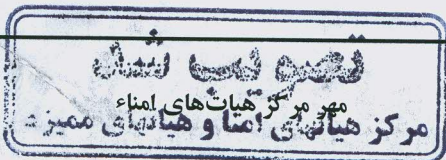 تصویب شد
مهر مرکز هیات‌های امناء
مرکز هیأتهای امنا و هیأتهای ممیزه